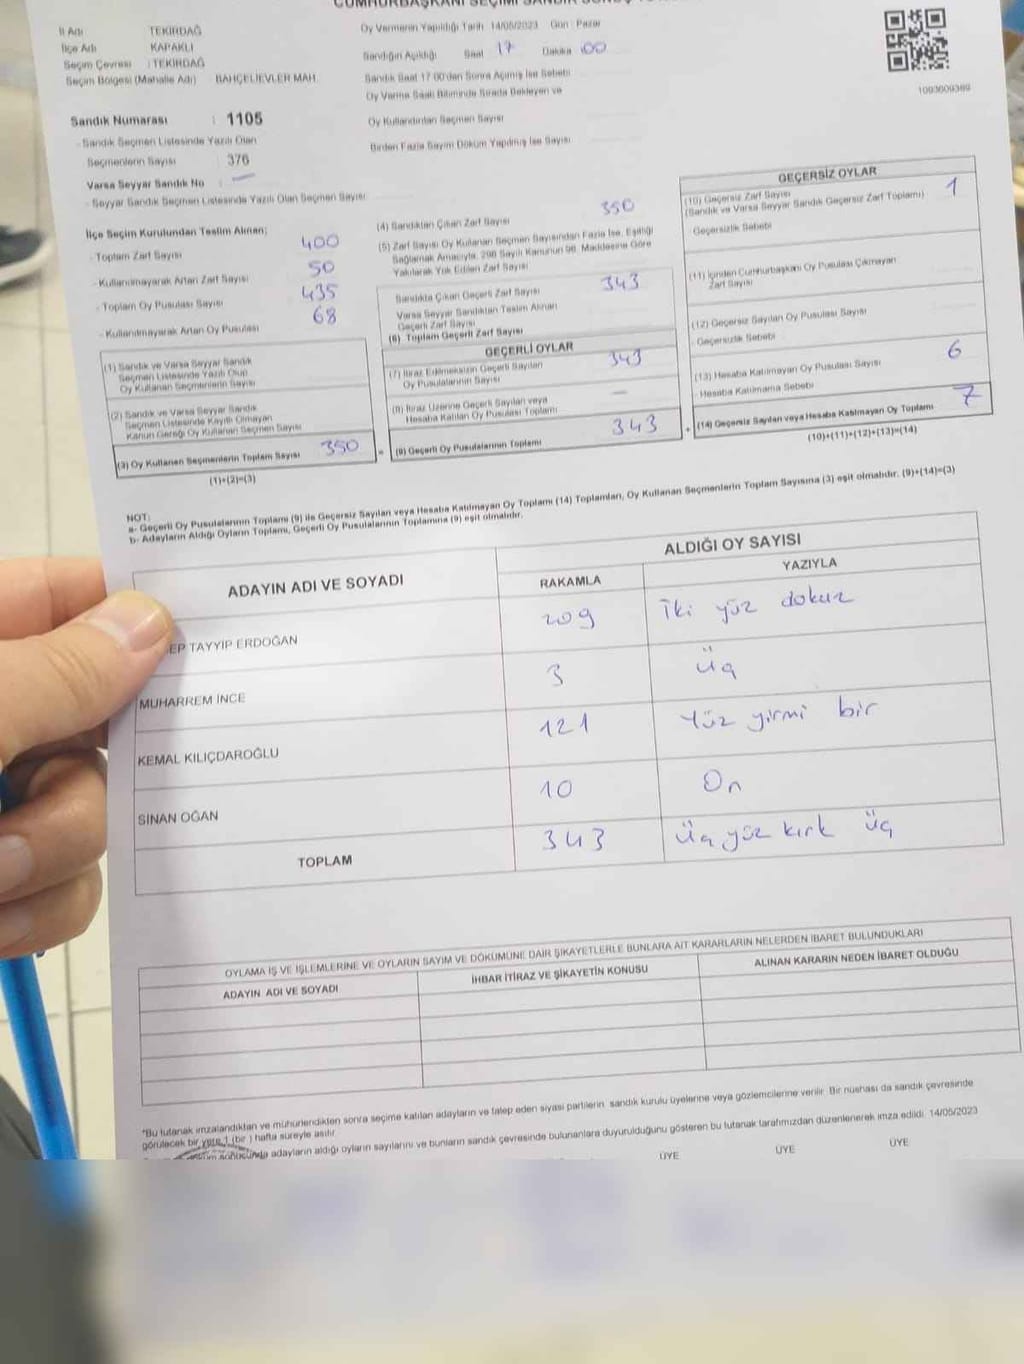 CUMHURBAŞKANI SEÇİMİ SANDIK SONUÇ
İl Adı TEKİRDAĞ
İlçe Adı KAPAKLI
Seçim Çevresi : TEKİRDAĞ
Seçim Bölgesi (Mahalle Adı) BAHÇELİEVLER MAH.
Oy Vermenin Yapıldığı Tarih 14/05/2023 Gün : Pazar
Sandığın Açıldığı Saat 17 Dakika 00
Sandık Saat 17.00'den Sonra Açılmış İse Sebebi
Oy Verme Saati Bitiminde Sırada Bekleyen ve
Oy Kullandırılan Seçmen Sayısı
Birden Fazla Sayım Döküm Yapılmış İse Sayısı
1093609389
Sandık Numarası : 1105
- Sandık Seçmen Listesinde Yazılı Olan
Seçmenlerin Sayısı : 376
Varsa Seyyar Sandık No : —
- Seyyar Sandık Seçmen Listesinde Yazılı Olan Seçmen Sayısı
İlçe Seçim Kurulundan Teslim Alınan;
- Toplam Zarf Sayısı 400
- Kullanılmayarak Artan Zarf Sayısı 50
- Toplam Oy Pusulası Sayısı 435
- Kullanılmayarak Artan Oy Pusulası 68
(1) Sandık ve Varsa Seyyar Sandık
Seçmen Listesinde Yazılı Olup
Oy Kullanan Seçmenlerin Sayısı
(2) Sandık ve Varsa Seyyar Sandık
Seçmen Listesinde Kayıtlı Olmayan
Kanun Gereği Oy Kullanan Seçmen Sayısı
(3) Oy Kullanan Seçmenlerin Toplam Sayısı 350
(1)+(2)=(3)
(4) Sandıktan Çıkan Zarf Sayısı 350
(5) Zarf Sayısı Oy Kullanan Seçmen Sayısından Fazla İse, Eşitliği
Sağlamak Amacıyla, 298 Sayılı Kanunun 98. Maddesine Göre
Yakılarak Yok Edilen Zarf Sayısı
Sandıkta Çıkan Geçerli Zarf Sayısı 343
Varsa Seyyar Sandıktan Teslim Alınan
Geçerli Zarf Sayısı
(6) Toplam Geçerli Zarf Sayısı
GEÇERLİ OYLAR
(7) İtiraz Edilmeksizin Geçerli Sayılan
Oy Pusulalarının Sayısı 343
(8) İtiraz Üzerine Geçerli Sayılan veya
Hesaba Katılan Oy Pusulası Toplamı —
= (9) Geçerli Oy Pusulalarının Toplamı 343
GEÇERSİZ OYLAR
(10) Geçersiz Zarf Sayısı 1
(Sandık ve Varsa Seyyar Sandık Geçersiz Zarf Toplamı)
Geçersizlik Sebebi
(11) İçinden Cumhurbaşkanı Oy Pusulası Çıkmayan
Zarf Sayısı
(12) Geçersiz Sayılan Oy Pusulası Sayısı
- Geçersizlik Sebebi
(13) Hesaba Katılmayan Oy Pusulası Sayısı 6
- Hesaba Katılmama Sebebi
+ (14) Geçersiz Sayılan veya Hesaba Katılmayan Oy Toplamı 7
(10)+(11)+(12)+(13)=(14)
NOT:
a- Geçerli Oy Pusulalarının Toplamı (9) ile Geçersiz Sayılan veya Hesaba Katılmayan Oy Toplamı (14) Toplamları, Oy Kullanan Seçmenlerin Toplam Sayısına (3) eşit olmalıdır. (9)+(14)=(3)
b- Adayların Aldığı Oyların Toplamı, Geçerli Oy Pusulalarının Toplamına (9) eşit olmalıdır.
ADAYIN ADI VE SOYADI
ALDIĞI OY SAYISI
RAKAMLA YAZIYLA
EP TAYYİP ERDOĞAN 209 İki yüz dokuz
MUHARREM İNCE 3 üç
KEMAL KILIÇDAROĞLU 121 Yüz yirmi bir
SİNAN OĞAN 10 On
TOPLAM 343 Üç yüz kırk üç
OYLAMA İŞ VE İŞLEMLERİNE VE OYLARIN SAYIM VE DÖKÜMÜNE DAİR ŞİKAYETLERLE BUNLARA AİT KARARLARIN NELERDEN İBARET BULUNDUKLARI
ADAYIN ADI VE SOYADI İHBAR İTİRAZ VE ŞİKAYETİN KONUSU ALINAN KARARIN NEDEN İBARET OLDUĞU
*Bu tutanak imzalandıktan ve mühürlendikten sonra seçime katılan adayların ve talep eden siyasi partilerin sandık kurulu üyelerine veya gözlemcilerine verilir. Bir nüshası da sandık çevresinde
görülecek bir yere 1 (bir) hafta süreyle asılır.
adayların aldığı oyların sayılarını ve bunların sandık çevresinde bulunanlara duyurulduğunu gösteren bu tutanak tarafımızdan düzenlenerek imza edildi. 14/05/2023
ÜYE ÜYE ÜYE